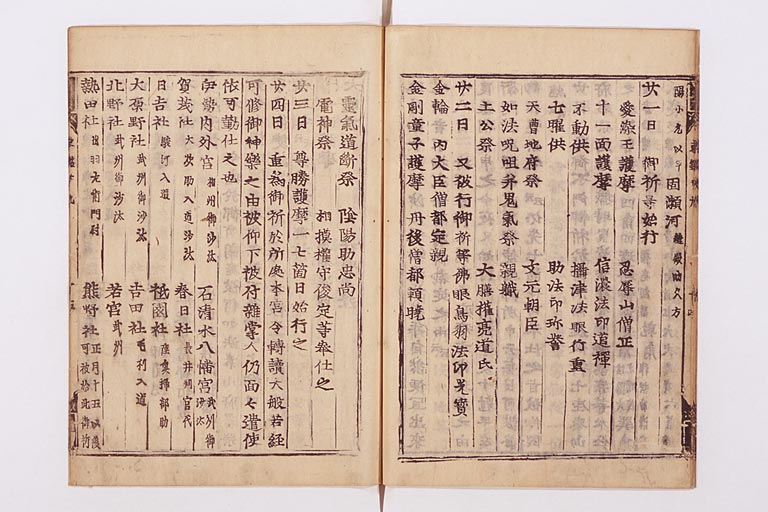 固瀬河
廿一日 御祈等始行
愛染王護摩 忍辱山僧正
十一面護摩 信濃法印道禪
不動供 播津法眼行重
七曜供 助法印珍譽
天曹地府祭 文元朝臣
如法呪咀并鬼氣祭 親職
土公祭 大膳權亮道氏
廿二日 又被行御祈等佛眼鳥羽法印光寶
金輪 内大臣僧都定親
金剛童子護摩 丹後僧都頼曉
大靈氣道断祭 陰陽助忠尚
雷神祭 相摸權守俊定等奉仕之
廿三日 尊勝護摩一七箇日始行之
廿四日 重爲御祈於所處本宮令轉讀大般若経
可修御神樂之由被仰下被付雜掌人仍面々遣使
依可勤仕之也
伊勢内外宮 相州御沙汰 石清水八幡宮 武州御沙汰
賀茂社 大炊助入道沙汰 春日社 長井判官代
日吉社 駿河入道 祗園社 掃部助
大原野社 武州御沙汰 吉田社 毛利入道
北野社 武州御沙汰 若宮 武州
熱田社 出羽左衛門尉 熊野社 正月十五以後